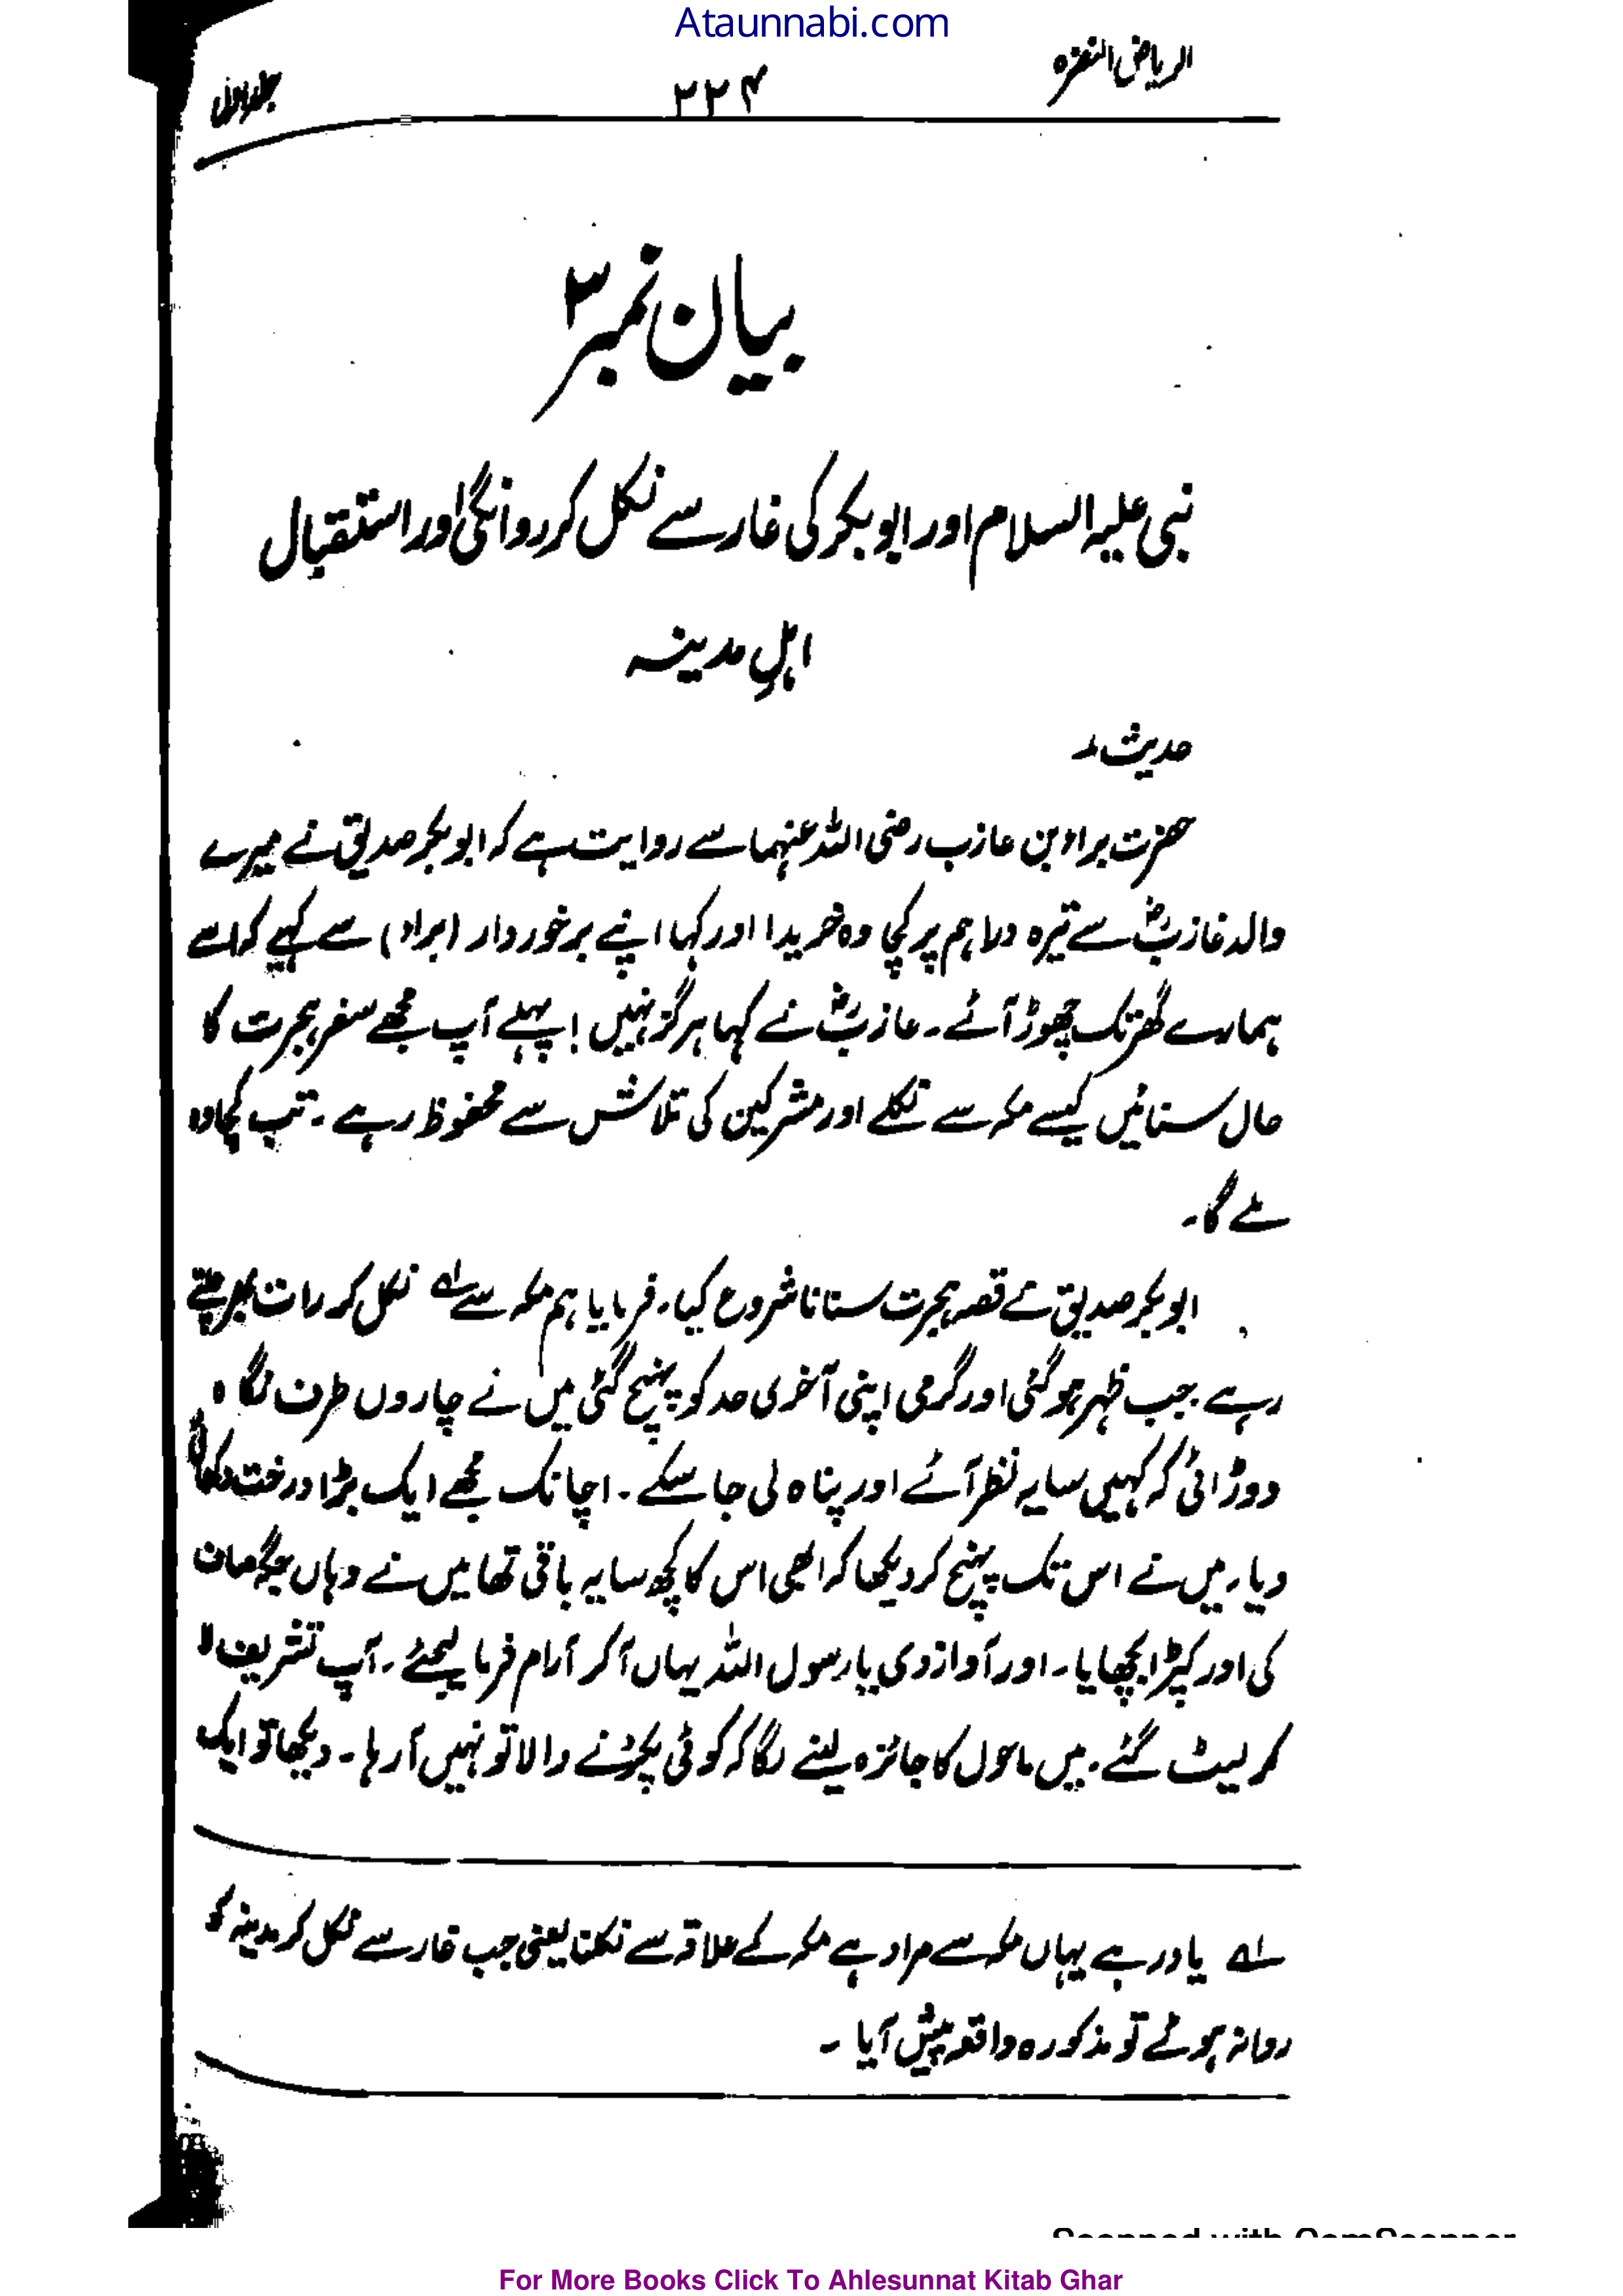 Ataunnabi.com
الریاض النضرہ
۲۲۴
جلد اول
بیان نمبر ۳
نبی علیہ السلام اور ابوبکر کی غار سے نکل کر روانگی اور استقبال
اہلِ مدینہ
حدیث :۔
حضرت براء بن عازب رضی اللہ عنہما سے روایت ہے کہ ابوبکر صدیق نے میرے
والد عازبؓ سے تیرہ دراہم پر کچا وہ خریدا اور کہا اپنے برخوردار (براء) سے کہیے کہ اسے
ہمارے گھر تک چھوڑ آئے۔ عازبؓ نے کہا ہرگز نہیں! پہلے آپ مجھے سفر ہجرت کا
حال سنائیں کیسے مکہ سے نکلے اور مشرکین کی تلاش سے محفوظ رہے۔ تب کچاوہ
ملے گا۔
ابوبکر صدیق نے قصہ ہجرت سنانا شروع کیا۔ فرمایا ہم مکہ سے لہ نکل کر رات بھر چلتے
رہے۔ جب ظہر ہو گئی اور گرمی اپنی آخری حد کو پہنچ گئی میں نے چاروں طرف نگاہ
دوڑائی کہ کہیں سایہ نظر آئے اور پناہ لی جا سکے۔ اچانک مجھے ایک بڑا درخت دکھائی
دیا۔ میں نے اس تک پہنچ کر دیکھا کہ ابھی اس کا کچھ سایہ باقی تھا میں نے وہاں جگہ صاف
کی اور کپڑا بچھایا۔ اور آواز دی یا رسول اللہ یہاں آکر آرام فرما لیجئے۔ آپ تشریف لا
کر لیٹ گئے۔ میں ماحول کا جائزہ لینے لگا کہ کوئی پکڑنے والا تو نہیں آرہا۔ دیکھا تو ایک
لہ یاد رہے یہاں مکہ سے مراد ہے مکہ کے علاقہ سے نکلنا یعنی جب غار سے نکل کر مدینہ کو
روانہ ہوئے تو مذکورہ واقعہ پیش آیا۔
Scanned with CamScanner
For More Books Click To Ahlesunnat Kitab Ghar